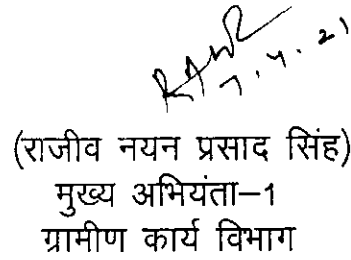 7.4.21
(राजीव नयन प्रसाद सिंह)
मुख्य अभियंता–1
ग्रामीण कार्य विभाग